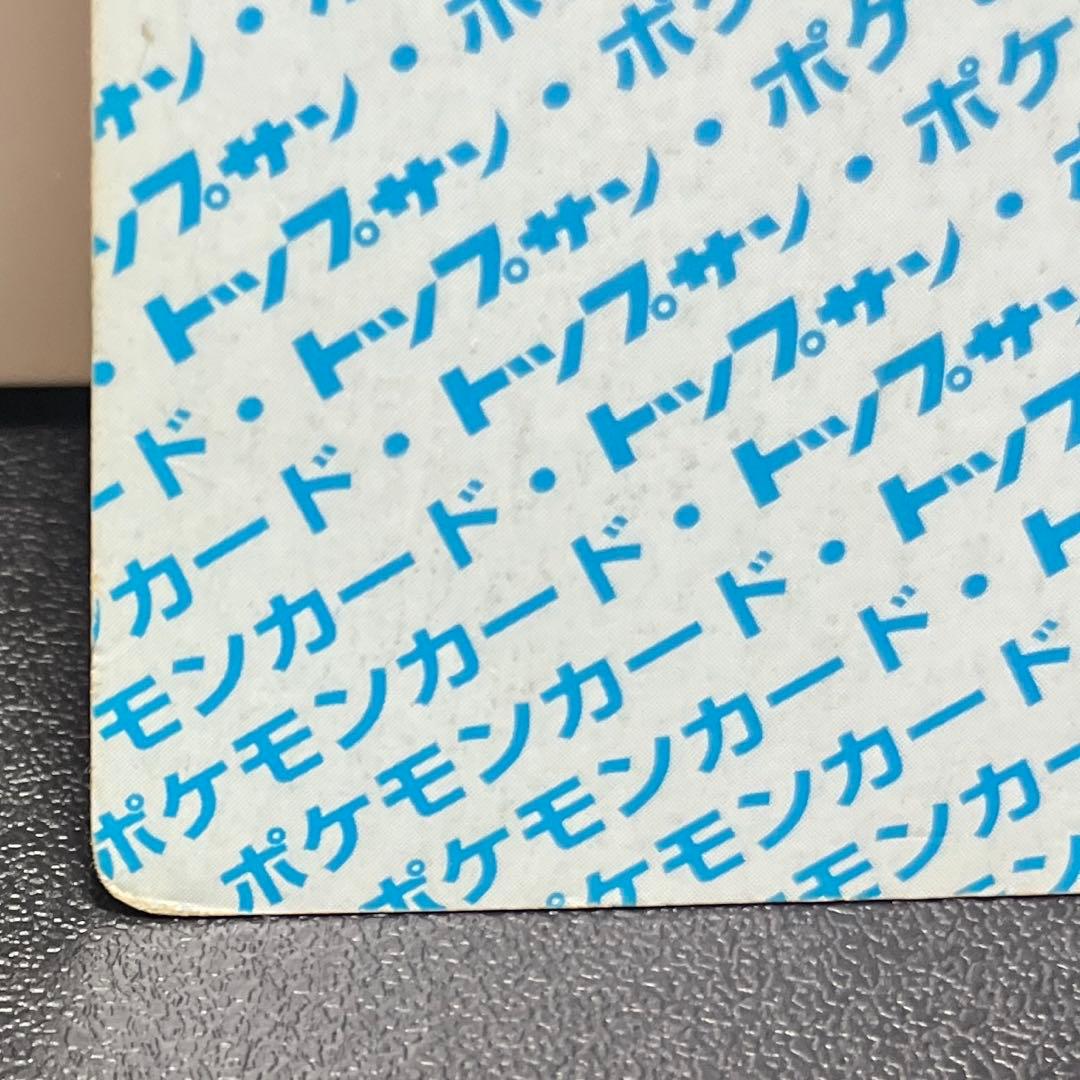 サン・
プサン・ポ
・トップサン・ポ
ード・トップサン・ポケ
カード・トップサン・ポケ
モンカード・トップサン・ポ
ポケモンカード・トップサン
ポケモンカード・トップ
ポケモンカード・ト
ケモンカード
モンカー